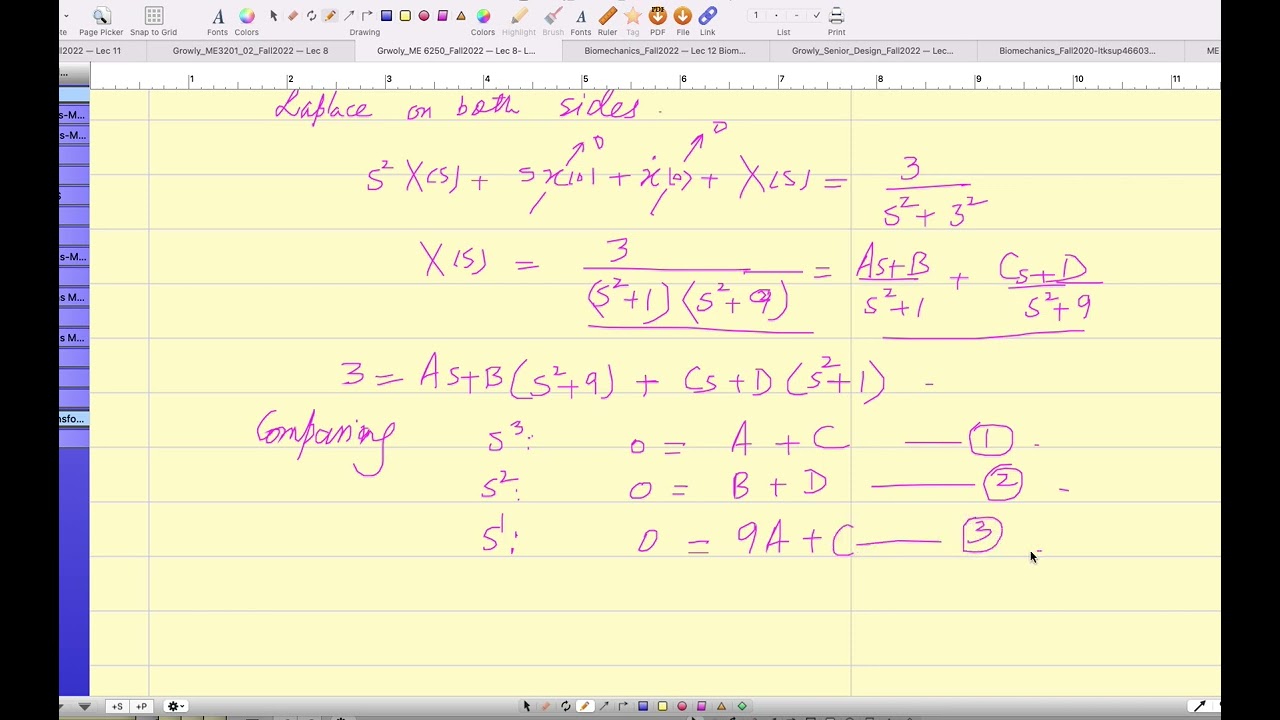 Page Picker Snap to Grid Fonts Colors Drawing Colors Highlight Brush Fonts Ruler Tag PDF File Link List Print
all2022 — Lec 11 Growly_ME3201_02_Fall2022 — Lec 8 Grwoly_ME 6250_Fall2022 — Lec 8- L... Biomechanics_Fall2022 — Lec 12 Biom... Growly_Senior_Design_Fall2022 — Lec... Biomechanics_Fall2020-ltksup46603... ME
1 2 3 4 5 6 7 8 9 10 11
Laplace on both sides.
s² X(s) + s x(0) + ẋ(0) + X(s) = 3 / (s² + 3²)
0 0
X(s) = 3 / ((s²+1)(s²+9)) = (As+B) / (s²+1) + (Cs+D) / (s²+9)
3 = As+B(s²+9) + Cs+D(s²+1)
Comparing s³: 0 = A + C — ①
s²: 0 = B + D — ②
s¹: 0 = 9A + C — ③
s-M...
s-M...
s-M...
s M...
s M...
nsfo...
+S +P